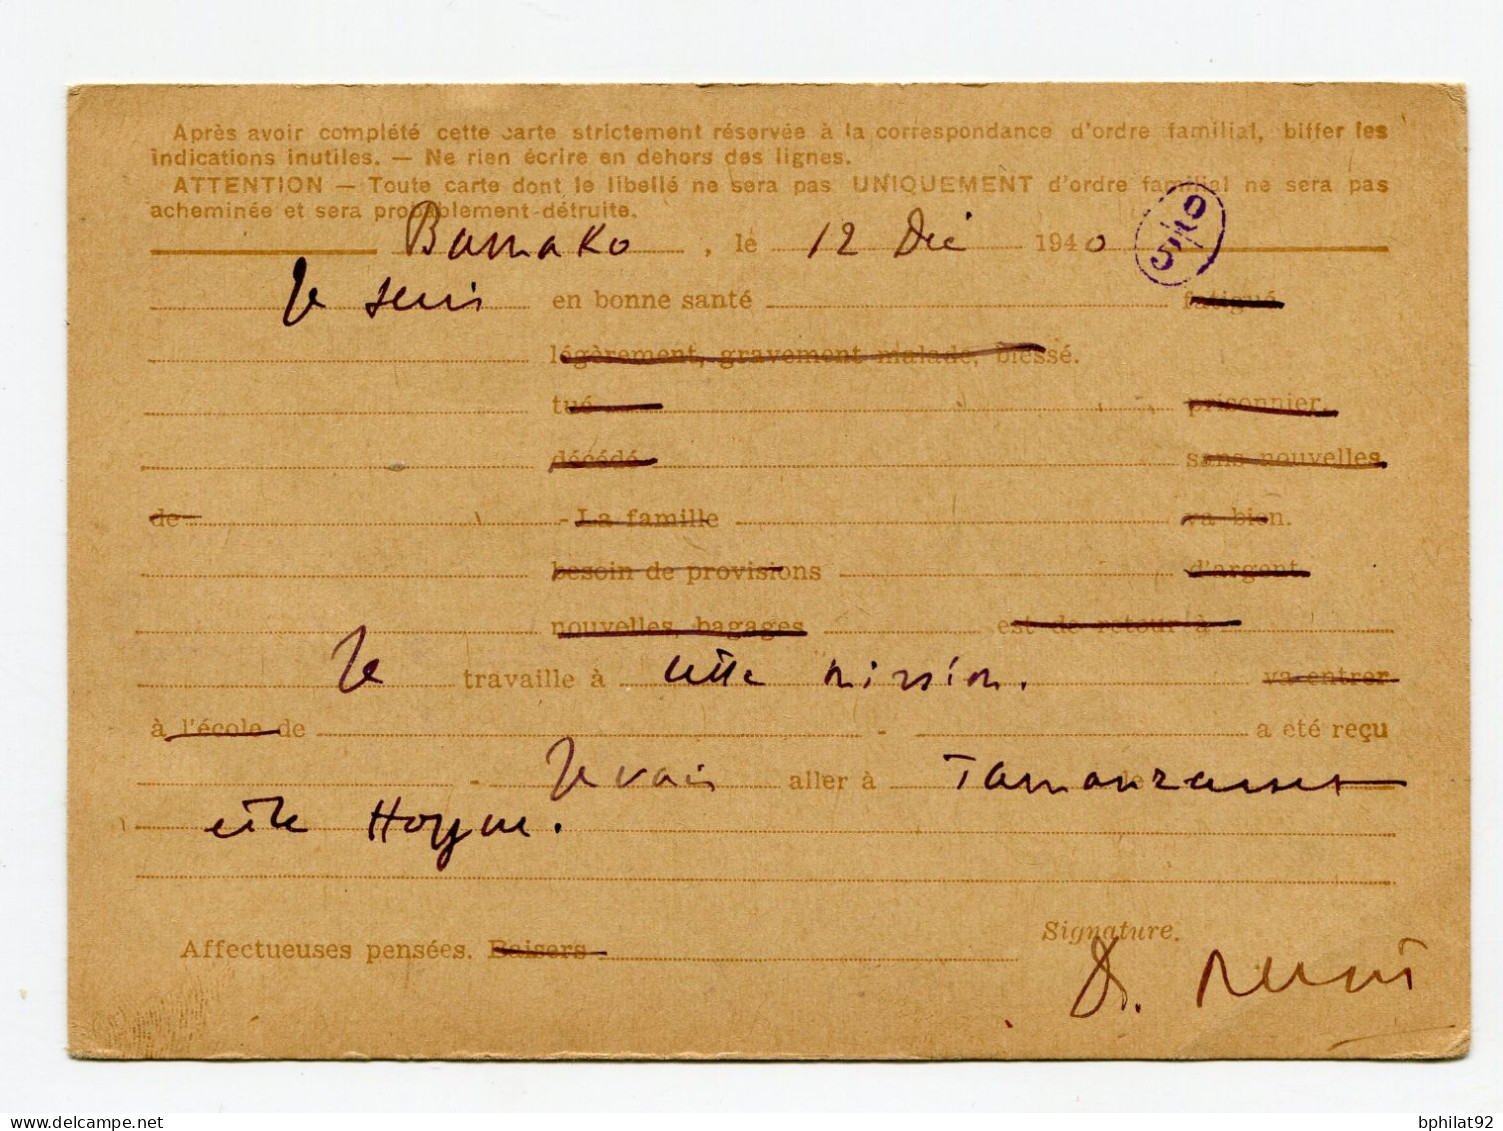 Après avoir complété cette carte strictement réservée à la correspondance d'ordre familial, biffer les
indications inutiles. — Ne rien écrire en dehors des lignes.
ATTENTION — Toute carte dont le libellé ne sera pas UNIQUEMENT d'ordre familial ne sera pas
acheminée et sera probablement détruite.
Bamako, le 12 Déc 1940
Je suis en bonne santé fatigué
légèrement, gravement malade, blessé.
tué prisonnier.
décédé sans nouvelles
de - La famille va bien.
besoin de provisions d'argent.
nouvelles, bagages est de retour à
Je travaille à cette mission. va entrer
à l'école de - a été reçu
- Je vais aller à Tamanrasset de
et le Hoggar.
Signature.
Affectueuses pensées. Baisers
bphilat92